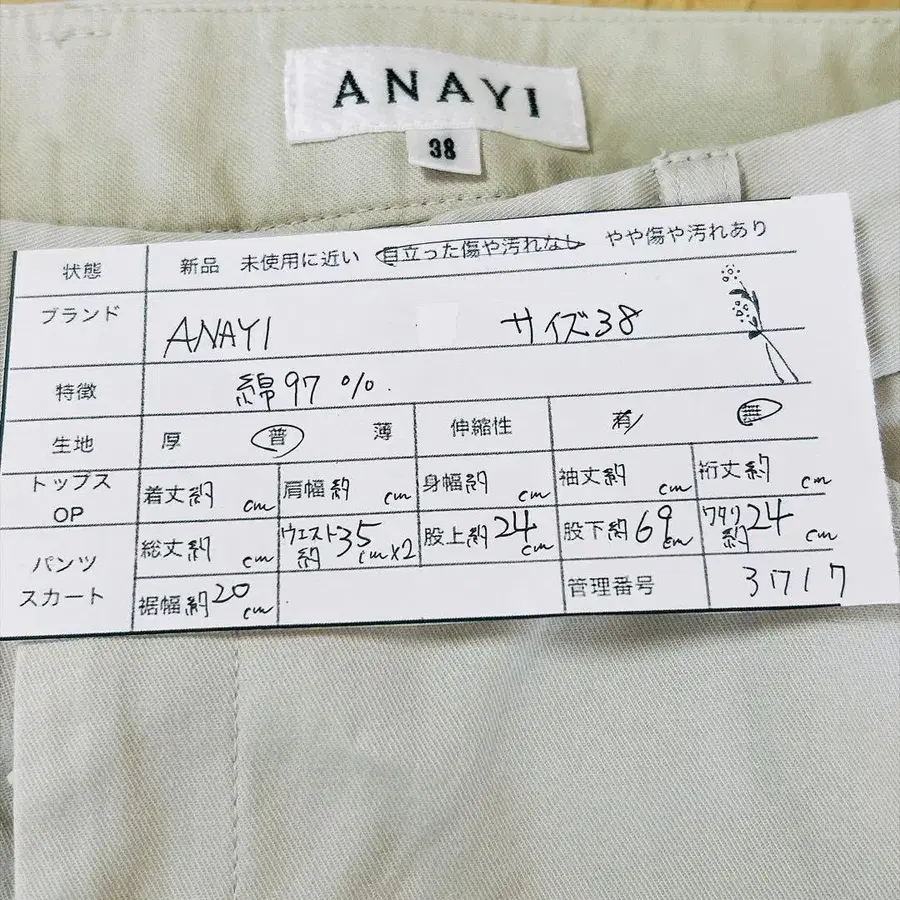 ANAYI
38
状態 新品 未使用に近い 目立った傷や汚れなし やや傷や汚れあり
ブランド ANAYI サイズ38
特徴 綿97%
生地 厚 普 薄 伸縮性 有 無
トップス OP 着丈約 cm 肩幅約 cm 身幅約 cm 袖丈約 cm 裄丈約 cm
パンツ スカート 総丈約 cm ウエスト約35cm×2 股上約24cm 股下約69cm ワタリ約24cm
裾幅約20cm 管理番号 3717